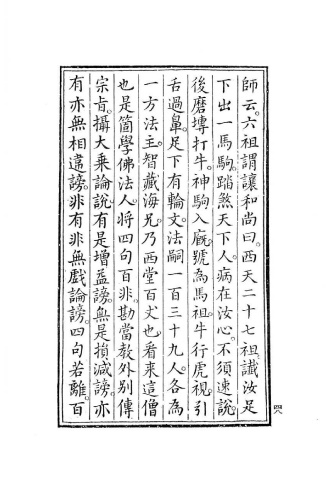 師云。六祖謂讓和尚曰。西天二十七祖。讖汝足
下出一馬駒。踏煞天下人。病在汝心。不須速說。
後磨塼打牛。神駒入廐。號為馬祖。牛行虎視。引
舌過鼻。足下有輪文。法嗣一百三十九人。各為
一方法主。智藏海兄。乃西堂百丈也。看來這僧
也是箇學佛法人。將四句百非。勘當教外別傳
宗旨。攝大乘論說。有是增益謗。無是損減謗。亦
有亦無相違謗。非有非無戲論謗。四句若離。百
四八